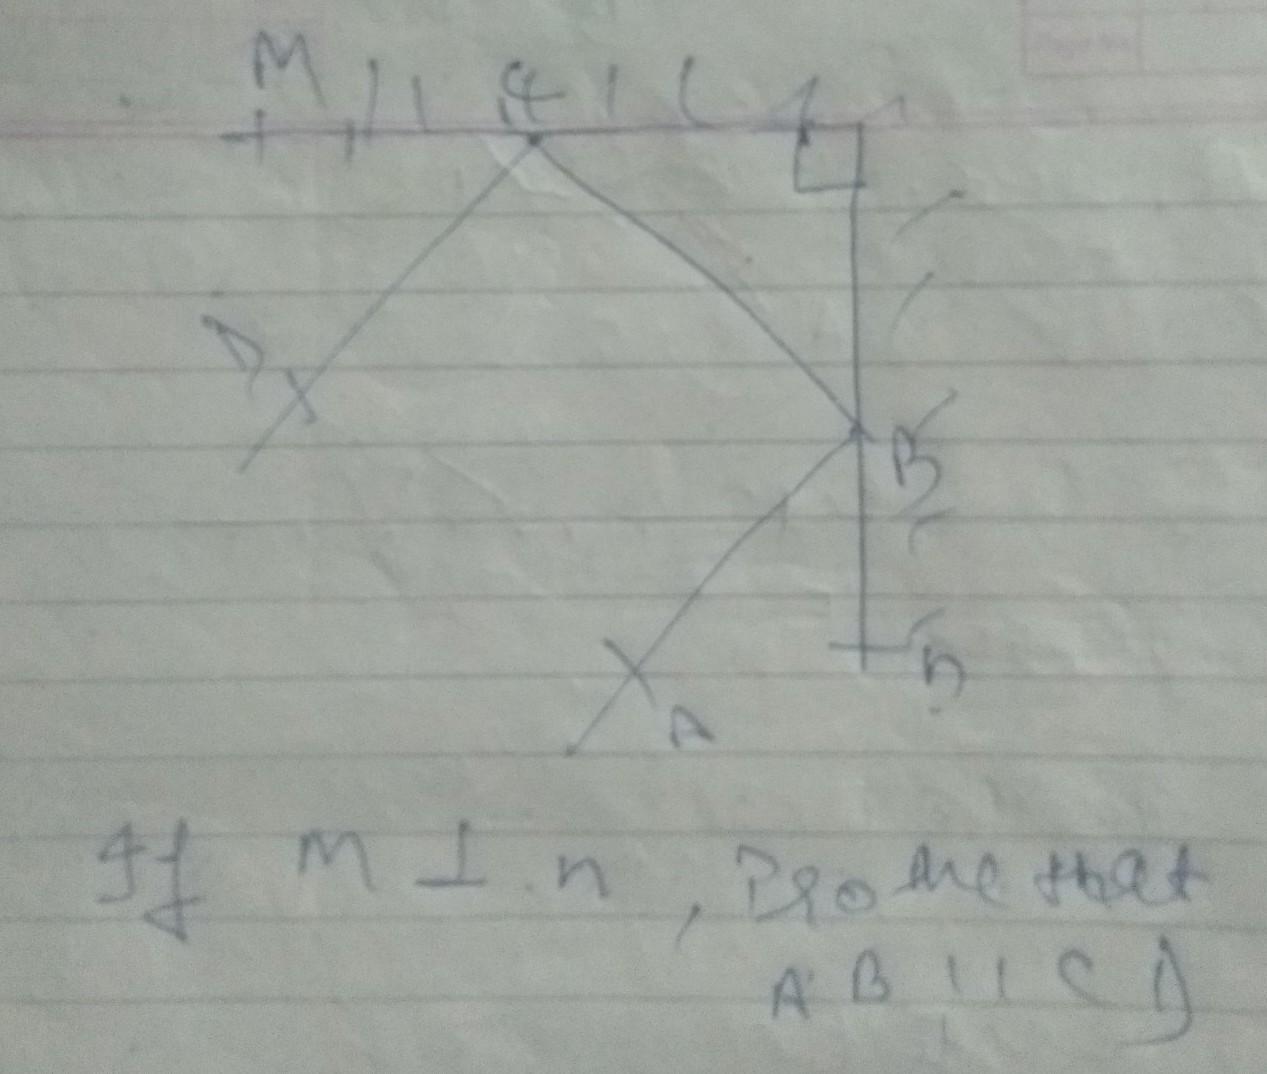 M
C
D
B
n
A
If m ⊥ n, Prove that
AB || CD